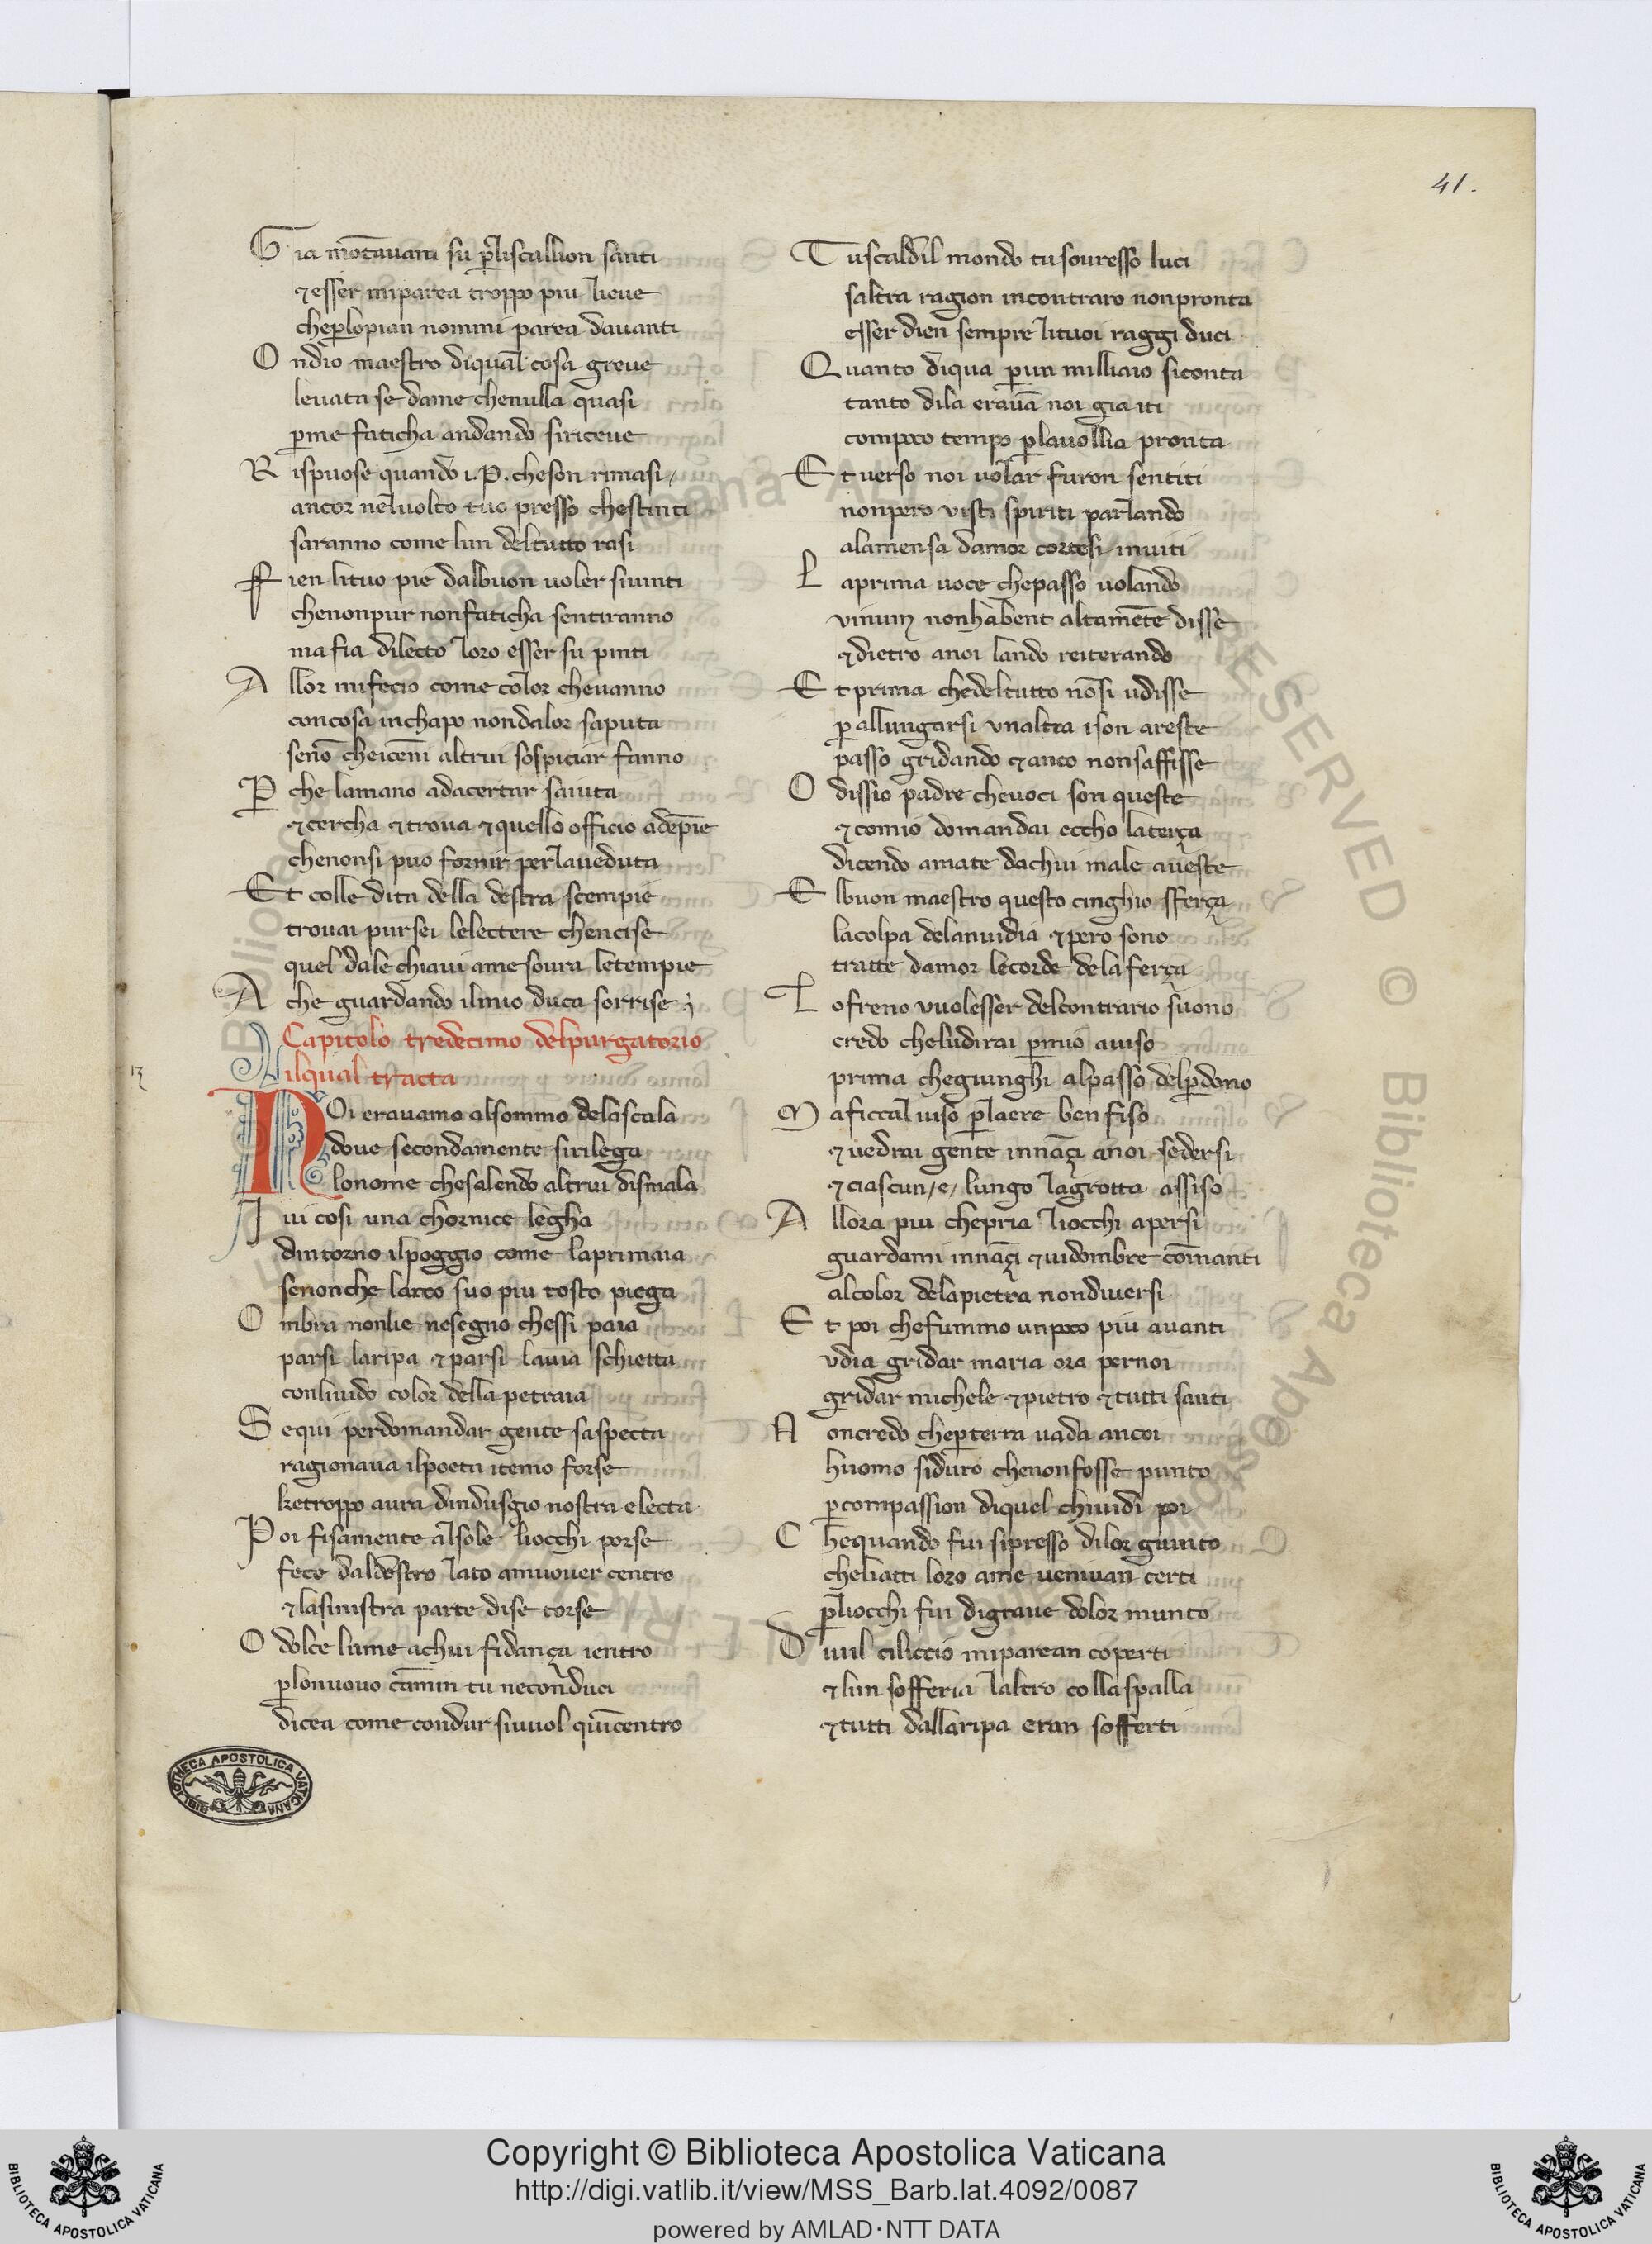 41.
Gia mōtauam su p̲liscallion santi
⁊esser miparea troppo piu lieue
chep̲lopian nommi parea dauanti
Ondio maestro diqual cosa greue
leuata se dame chenulla quasi
p̲me faticha andando siriceue
Rispuose quando i.P. cheson rimasi/
ancor neluolto tuo presso chestinti
saranno come lun deltutto rasi
Fien lituo pie dalbuon uoler siuinti
chenonpur nonfaticha sentiranno
ma fia dilecto loro esser su pinti
Allor mifecio come color cheuanno
concosa inchapo nondalor saputa
senō cheicēni altrui sospiciar fanno
P̲che lamano adacertar saiuta
⁊cercha ⁊troua ⁊quello officio adēpie
chenonsi puo fornir perlaueduta
Et colle dita della destra scempie
trouai pursei lelectere chencise
quel dale chiaui ame soura letempie
Ache guardando ilmio duca sorrise
Capitolo tredecimo delpurgatorio
ilqual tracta
NOi erauamo alsommo delascala
doue secondamente sirilega
lonome chesalendo altrui dismala
Iui cosi una chornice legha
dintorno ilpoggio come laprimaia
senonche larco suo piu tosto piega
Ombra nonlie nesegno chessi paia
parsi laripa ⁊parsi lauia schietta
conliuido color della petraia
Sequi perdomandar gente saspecta
ragionaua ilpoeta itemo forse
ketroppo aura dindusgio nostra electa
Poi fisamente alsole liocchi porse
fece daldestro lato amuouer centro
⁊lasinistra parte dise torse
O dolce lume achui fidança ientro
p̲lonuouo cāmin tu neconduci
dicea come condur siuuol quīcentro
Tuscaldil mondo tusouresso luci
saltra ragion incontraro nonpronta
esser dien sempre lituoi raggi duci
Quanto diqua p̲un milliaio siconta
tanto dila erauā noi gia iti
compoco tempo p̲lauollia pronta
Et uerso noi uolar furon sentiti
nonpero visti spiriti parlando
alamensa damor cortesi inuiti
Laprima uoce chepasso uolando
vinum nonhabent altamēte disse
⁊dietro anoi lando reiterando
Et prima chedeltutto nōsi udisse
p̲allungarsi vnaltra ison areste
passo gridando ⁊anco nonsaffisse
O dissio padre cheuoci son queste
⁊comio domandai eccho laterça
dicendo amate dachui male aueste
Elbuon maestro questo cinghio sferça
lacolpa delanuidia ⁊pero sono
tratte damor lecorde delaferça
Lofreno vuolesser delcontrario suono
credo cheludirai p̲mio auiso
prima chegiunghi alpasso delp̲dono
Maficcal uiso p̲laere ben fiso
⁊uedrai gente innāçi anoi sedersi
⁊ciascun/e/ lungo lagrotta assiso
Allora piu chepria liocchi apersi
guardami innāçi ⁊uidombre cōmanti
alcolor delapietra nondiuersi
Et poi chefummo unpoco piu auanti
vdia gridar maria ora pernoi
gridar michele ⁊pietro ⁊tutti santi
Noncredo chep̲terra uada ancoi
huomo siduro chenonfosse punto
p̲compassion diquel chiuidi poi
Chequando fui sipresso dilor giunto
cheliatti loro ame ueniuan certi
p̲liocchi fui digraue dolor munto
Diuil ciliccio miparean coperti
⁊lun sofferia laltro collaspalla
⁊tutti dallaripa eran sofferti
BIBLIOTHECA APOSTOLICA VATICANA
Copyright © Biblioteca Apostolica Vaticana
http://digi.vatlib.it/view/MSS_Barb.lat.4092/0087
powered by AMLAD·NTT DATA
BIBLIOTECA APOSTOLICA VATICANA
BIBLIOTECA APOSTOLICA VATICANA